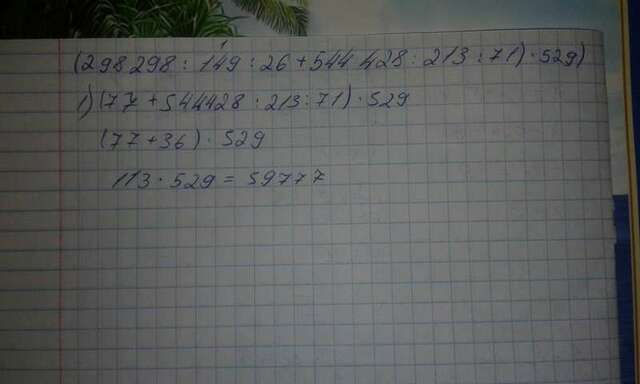 (298298:149:26+544428:213:71)·529)
1)(77+544428:213:71)·529
(77+36)·529
113·529=59777